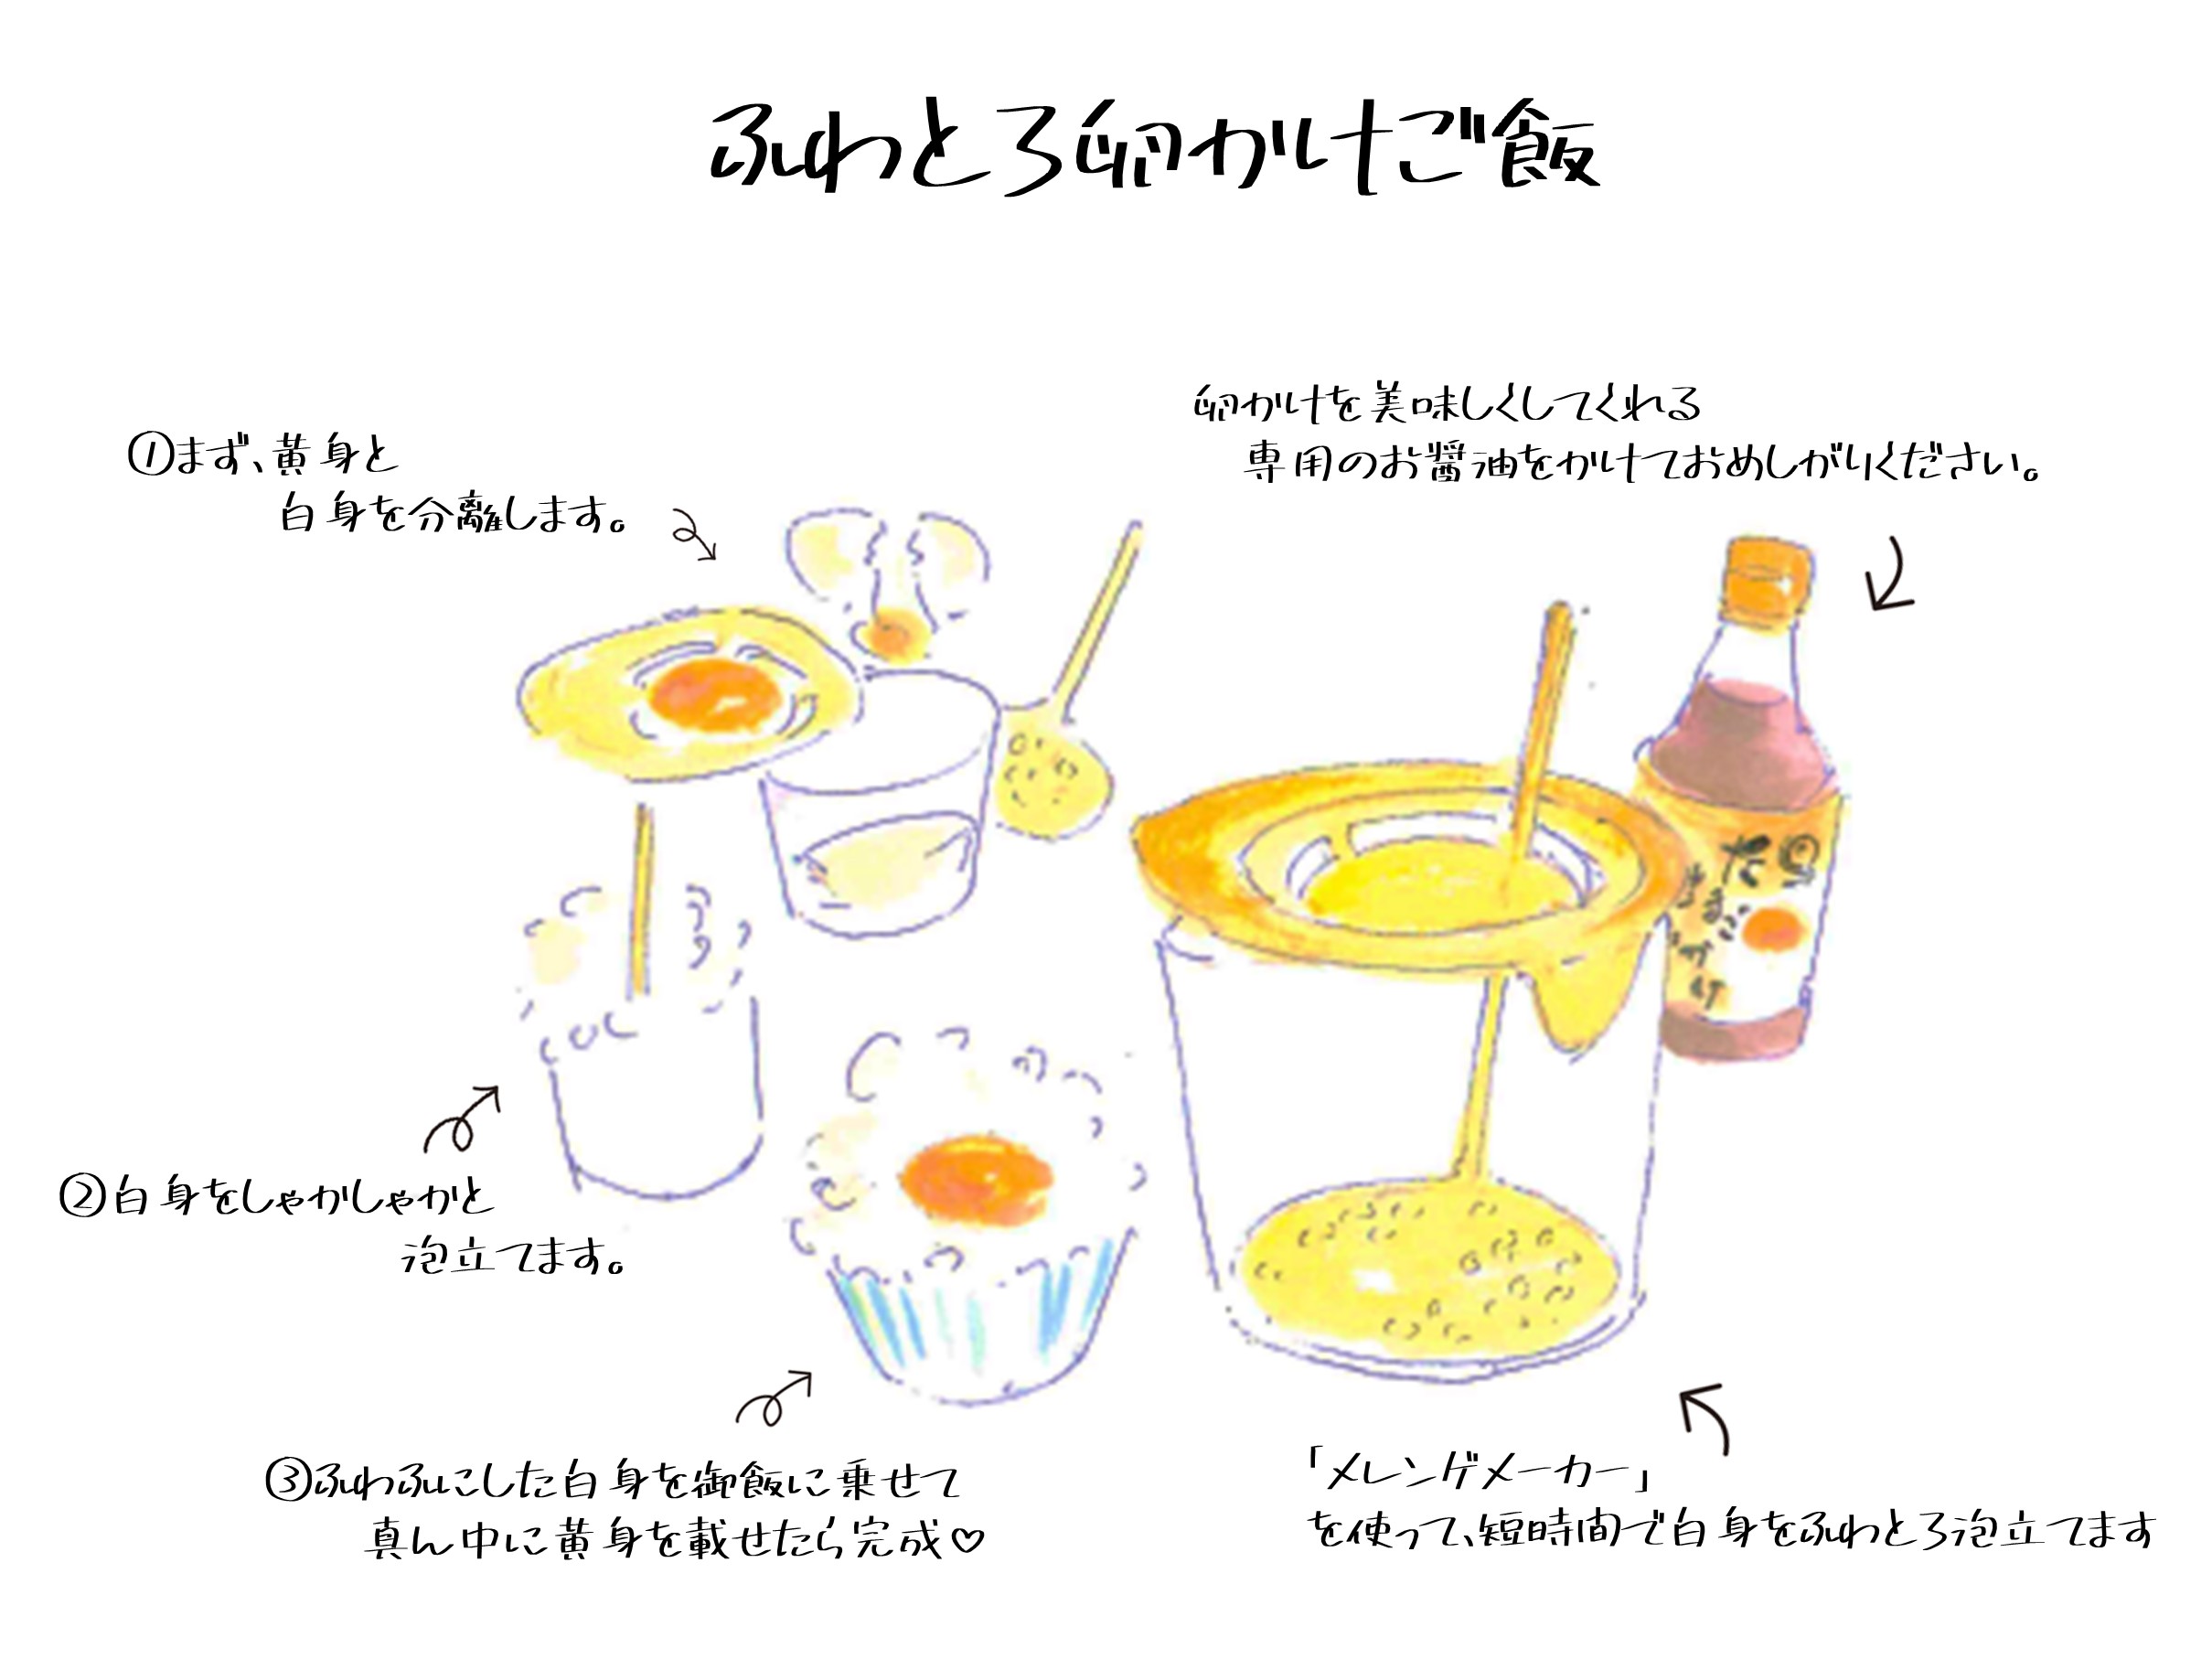 ふわとろ卵かけご飯
①まず、黄身と
白身を分離します。
卵かけを美味しくしてくれる
専用のお醤油をかけておめしがりください。
たまごかけ
②白身をしゃかしゃかと
泡立てます。
③ふわふにした白身を御飯に乗せて
真ん中に黄身を載せたら完成♡
「メレンゲメーカー」
を使って、短時間で白身をふわとろ泡立てます